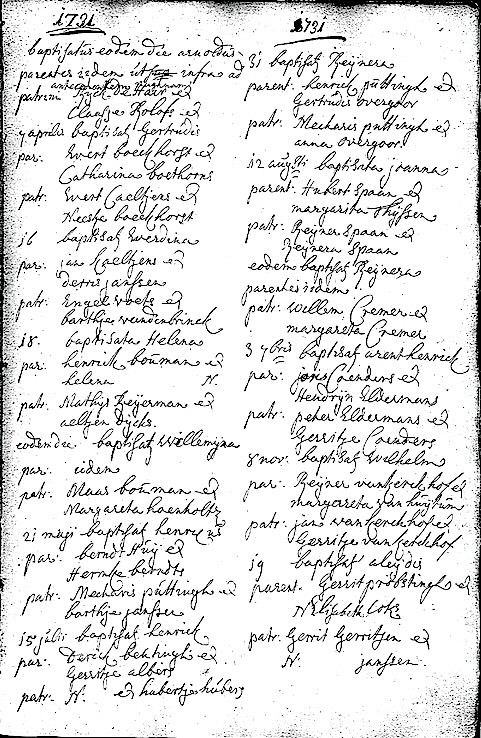 1721
baptisatus eodem die arnoldus
parentes iidem ut infra ad
patrini Dyck de Haes ed
Claasje Rolofs ed
7 aprilis baptisat Gertrudis
par: Evert boeckhorst ed
Catharina boekhorns
patr: Evert Caeltjens ed
Neeske boeckhorst
16 baptisat Everdina
par: jan Caeltjens ed
derris janssen
patr: Engel voets ed
barthje vandenbrinck
18. baptisata Helena
par: henrick bouman ed
helena N.
patr: Mathys Reijerman ed
aeltjen Dycks.
eodem die baptisat Willemyna
par: iidem
patr: Maas bouman ed
Margareta haenholtz
21 maji baptisat henricus
par: berndt Huij ed
Hermke berndts
patr: Mecharis puttingh ed
barthje janssen
15 julii baptisat henrick
par: Derick bekkingh ed
Gerritje albers
patr: N. ed hubertje hubers
1721
31 baptisat Reijnera
parent: henrick puttingh ed
Gertrudis overgoor
patr: Mecharis puttingh ed
anna overgoor
12 augusti baptisata joanna
parent: Hubert Spaan ed
margarita thyssen
patr: Reijner Spaan ed
Reijnera Spaan
eodem baptisat Reijnera
parentes iidem
patr: Willem Cremer ed
margareta Cremer
3 7bris baptisat arent henrick
par: jans Coenders ed
Hendryn Eldermans
patr: peter Eldermans ed
Gerritje Coenders
8 nov: baptisat Wilhelm
par: Reijner van kerckhof ed
margarreta van huytum
patr: jans van kerckhof ed
Gerritje van kerckhof
19 baptisat aleydis
parent. Gerrit probstingh ed
N Elisabeth Cokz
patr: Gerrit Gerritsen ed
N. janssen